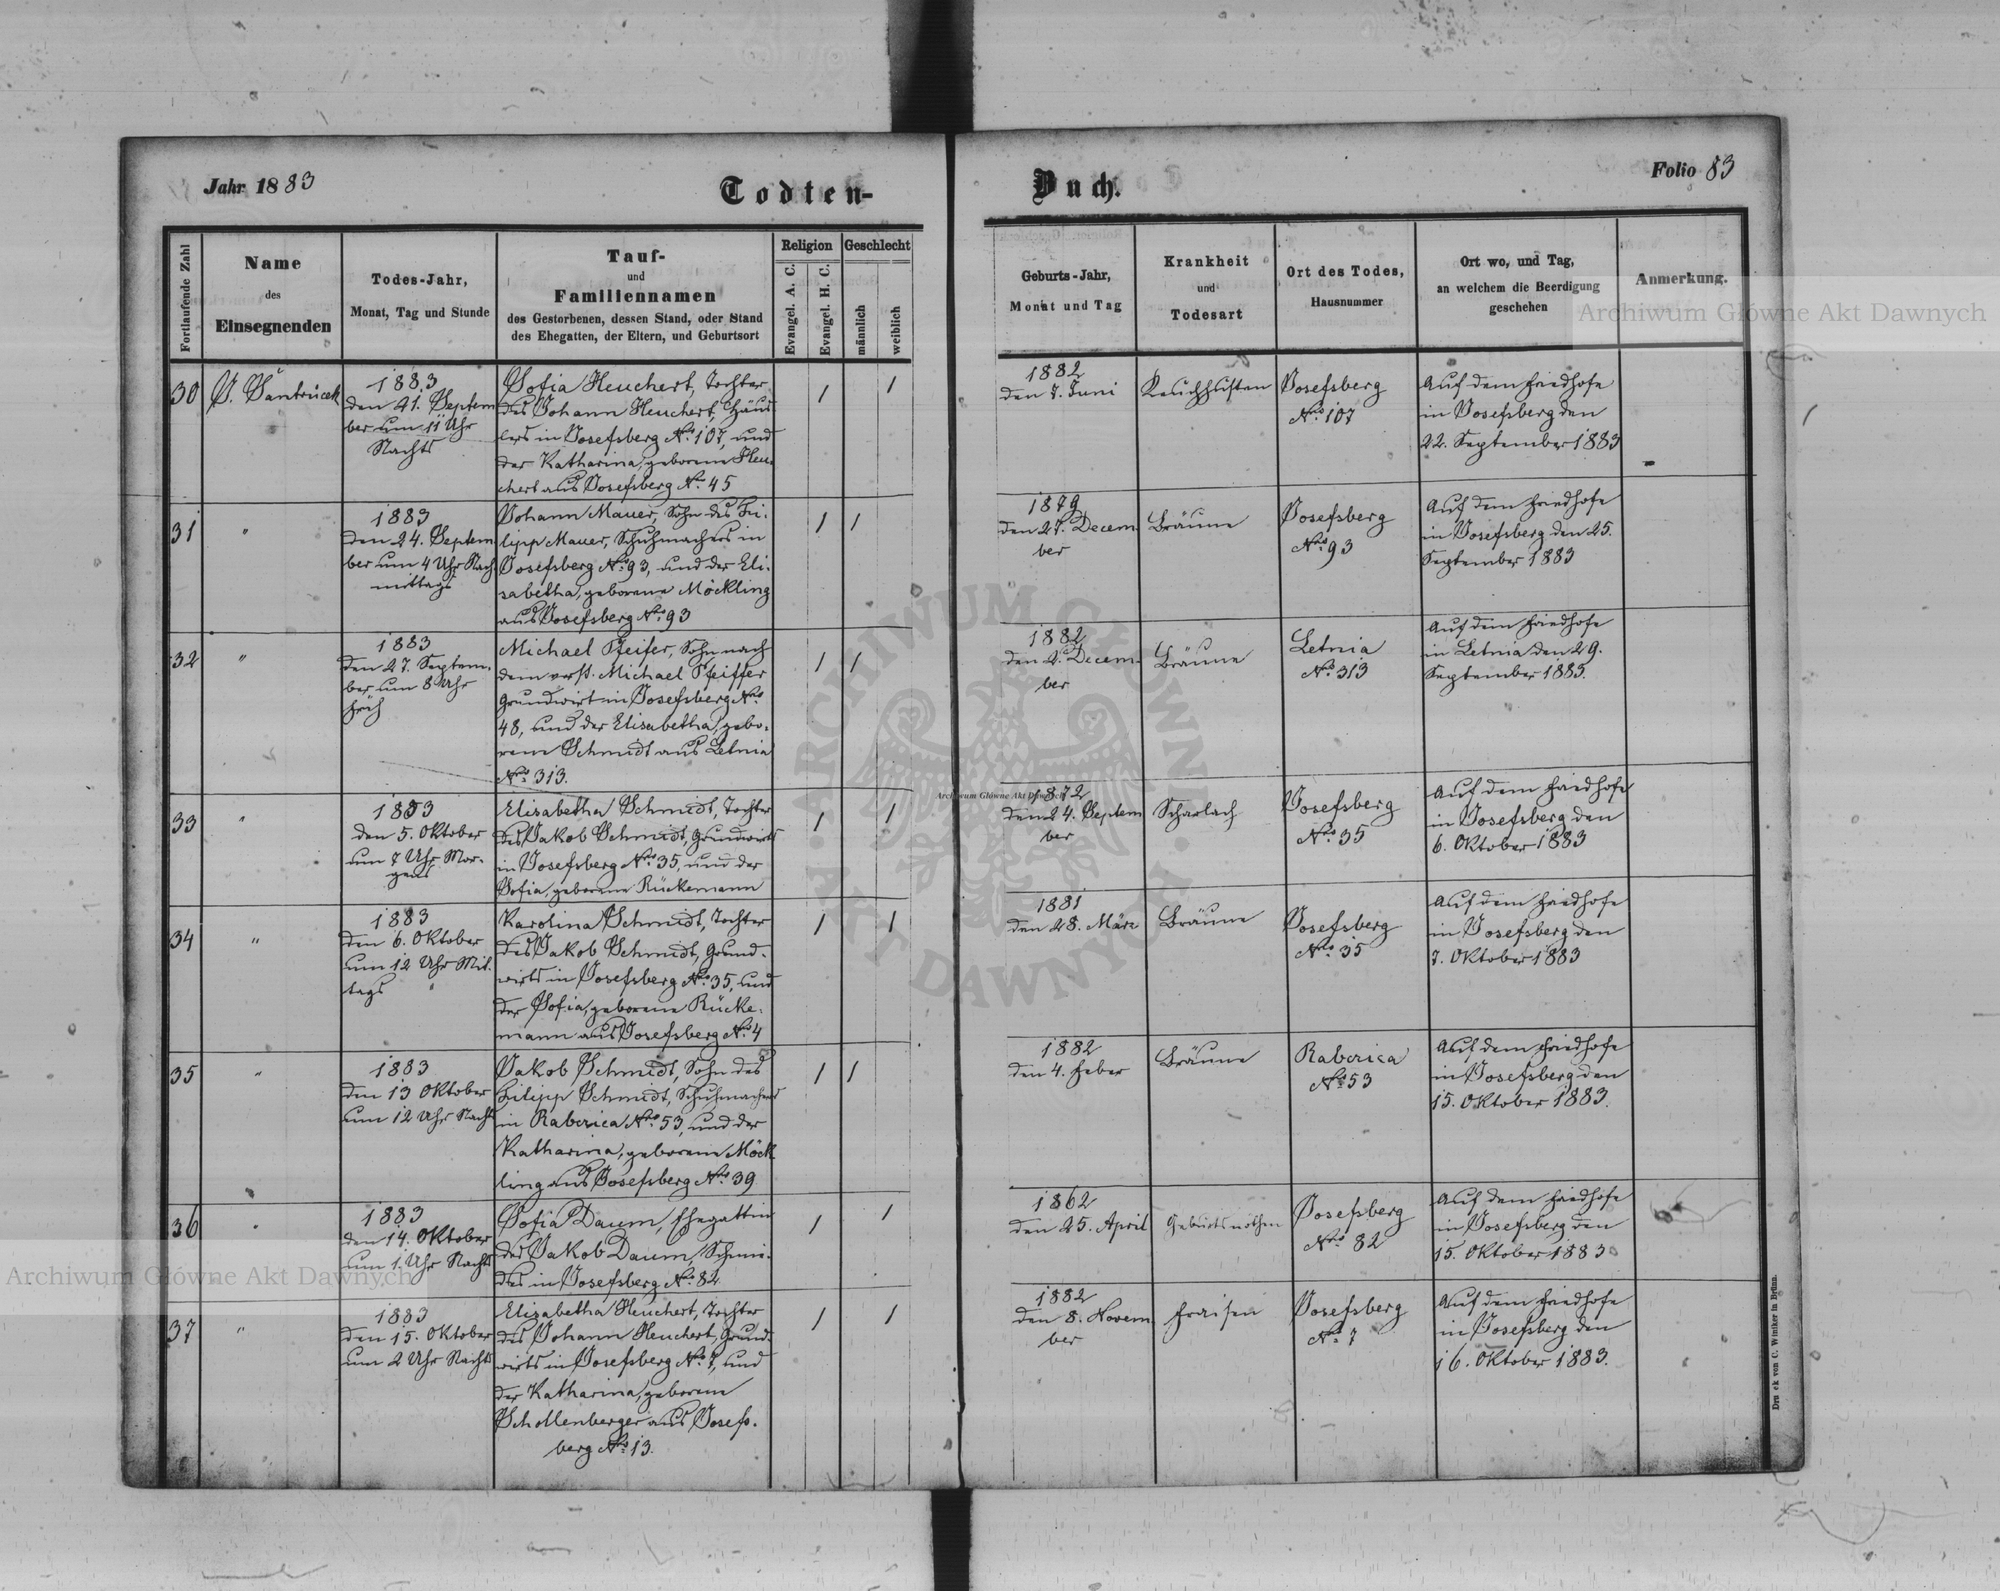 Jahr 1883
Todten-
Buch.
Folio 83
Fortlaufende Zahl
Name
des
Einsegnenden
Todes-Jahr,
Monat, Tag und Stunde
Tauf-
und
Familiennamen
des Gestorbenen, dessen Stand, oder Stand
des Ehegatten, der Eltern, und Geburtsort
Religion
Evangel. A. C.
Evangel. H. C.
Geschlecht
männlich
weiblich
Geburts-Jahr,
Monat und Tag
Krankheit
und
Todesart
Ort des Todes,
Hausnummer
Ort wo, und Tag,
an welchem die Beerdigung
geschehen
Anmerkung.
30
J. Šantrůcek
1883
den 21. Septem
ber um 11 Uhr
Nachts
Sofia Heuchert, Tochter
des Johann Heuchert, Häus
lers in Josefsberg No. 107, und
der Katharina, geborene Heu.
chert aus Josefsberg No. 45
/
/
1882
den 7. Juni
Keuchhusten
Josefsberg
Nro. 107
Auf dem Friedhofe
in Josefsberg den
22. September 1883
31
"
1883
den 24. Septem
ber um 4 Uhr Nach.
mittags
Johann Mauer, Sohn des Fi.
lipp Mauer, Schuhmachers in
Josefsberg No. 93, und der Eli.
sabetha, geborene Möckling
aus Josefsberg Nro. 93
/
/
1879
den 27. Decem
ber
Bräune
Josefsberg
Nro. 93
Auf dem Friedhofe
in Josefsberg den 25.
September 1883
32
"
1883
den 27. Septem.
ber um 8 Uhr
früh
Michael Pfeifer, Sohn nach
dem verst. Michael Pfeiffer
Grundwirt in Josefsberg Nro.
48, und der Elisabetha, gebo.
rene Schmidt aus Letnia
Nro. 313.
/
/
1882
den 2. Decem.
ber
Bräune
Letnia
Nro. 313
Auf dem Friedhofe
in Letnia den 29.
September 1883.
33
"
1883
den 5. Oktober
um 7 Uhr Mor.
gens
Elisabetha Schmidt, Tochter
des Jakob Schmidt, Grundwirts
in Josefsberg Nro. 35, und der
Sofia, geborene Rückemann
/
/
1872
den 24. Septem
ber
Scharlach
Josefsberg
Nro. 35
Auf dem Friedhofe
in Josefsberg den
6. Oktober 1883
34
"
1883
den 6. Oktober
um 12 Uhr Mit.
tags
Karolina Schmidt, Tochter
des Jakob Schmidt, Grund.
wirts in Josefsberg No. 35, und
der Sofia, geborene Rücke.
mann aus Josefsberg No. 4
/
/
1881
den 28. März
Bräune
Josefsberg
Nro. 35
Auf dem Friedhofe
in Josefsberg den
7. Oktober 1883
35
"
1883
den 13 Oktober
um 12 Uhr Nacht
Jakob Schmidt, Sohn des
Filipp Schmidt, Schuhmachers
in Rabcica Nro. 53, und der
Katharina, geborene Möck
ling aus Josefsberg Nro. 39
/
/
1882
den 4. Feber
Bräune
Rabcica
Nro. 53
Auf dem Friedhofe
in Josefsberg den
15. Oktober 1883.
36
"
1883
den 14. Oktober
um 1 Uhr Nachts
Sofia Daum, Ehegattin
des Jakob Daum, Schmie.
des in Josefsberg No. 82
/
/
1862
den 25. April
Geburtsnöthen
Josefsberg
Nro. 82
Auf dem Friedhofe
in Josefsberg den
15. Oktober 1883
37
"
1883
den 15. Oktober
um 2 Uhr Nachts
Elisabetha Heuchert, Tochter
des Johann Heuchert, Grund.
wirts in Josefsberg No. 7, und
der Katharina, geborene
Schollenberger aus Josefs.
berg Nro. 13.
/
/
1882
den 8. Novem
ber
Fraisen
Josefsberg
No. 7
Auf dem Friedhofe
in Josefsberg den
16. Oktober 1883.
Druck von C. Winiker in Brünn.
Archiwum Główne Akt Dawnych
Archiwum Główne Akt Dawnych
Archiwum Główne Akt Dawnych
ARCHIWUM GŁÓWNE · AKT DAWNYCH ·